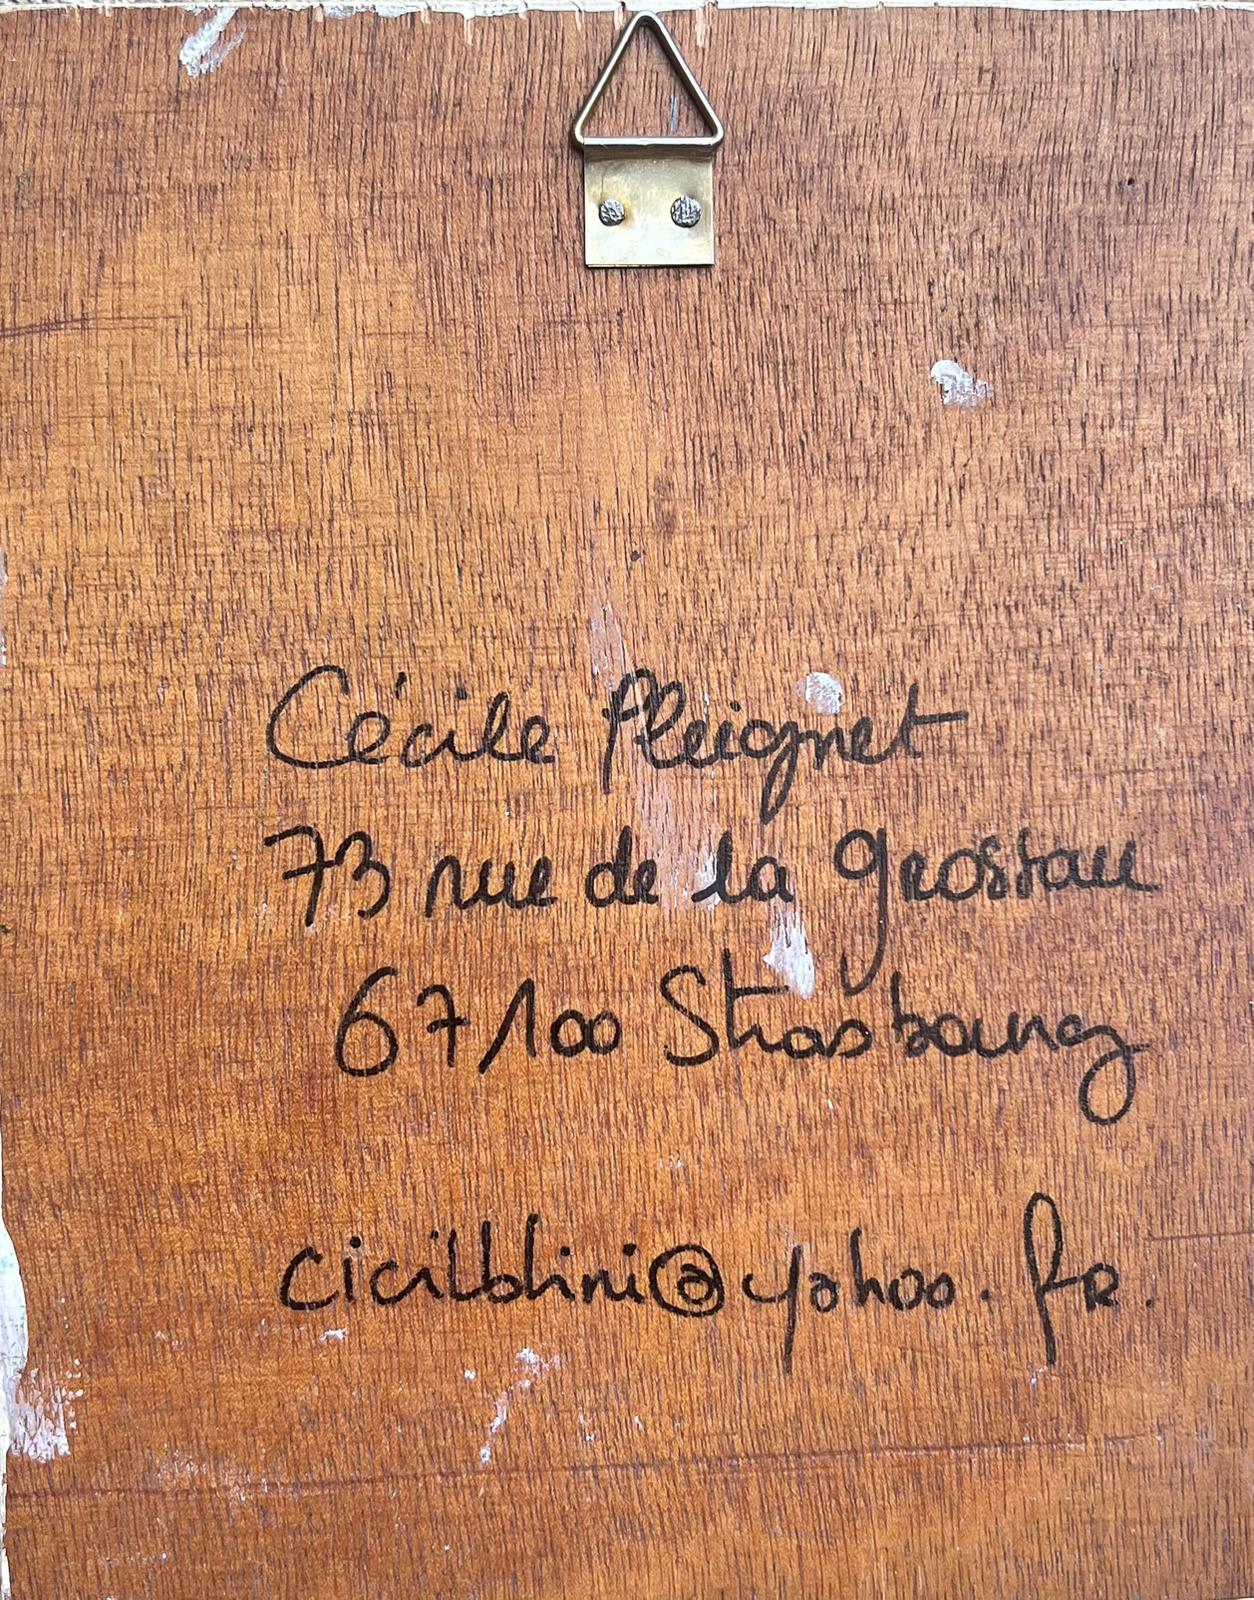 Cécile Pleignet
73 rue de la grossau
67100 Strasbourg
cicilblini@yahoo.fr.